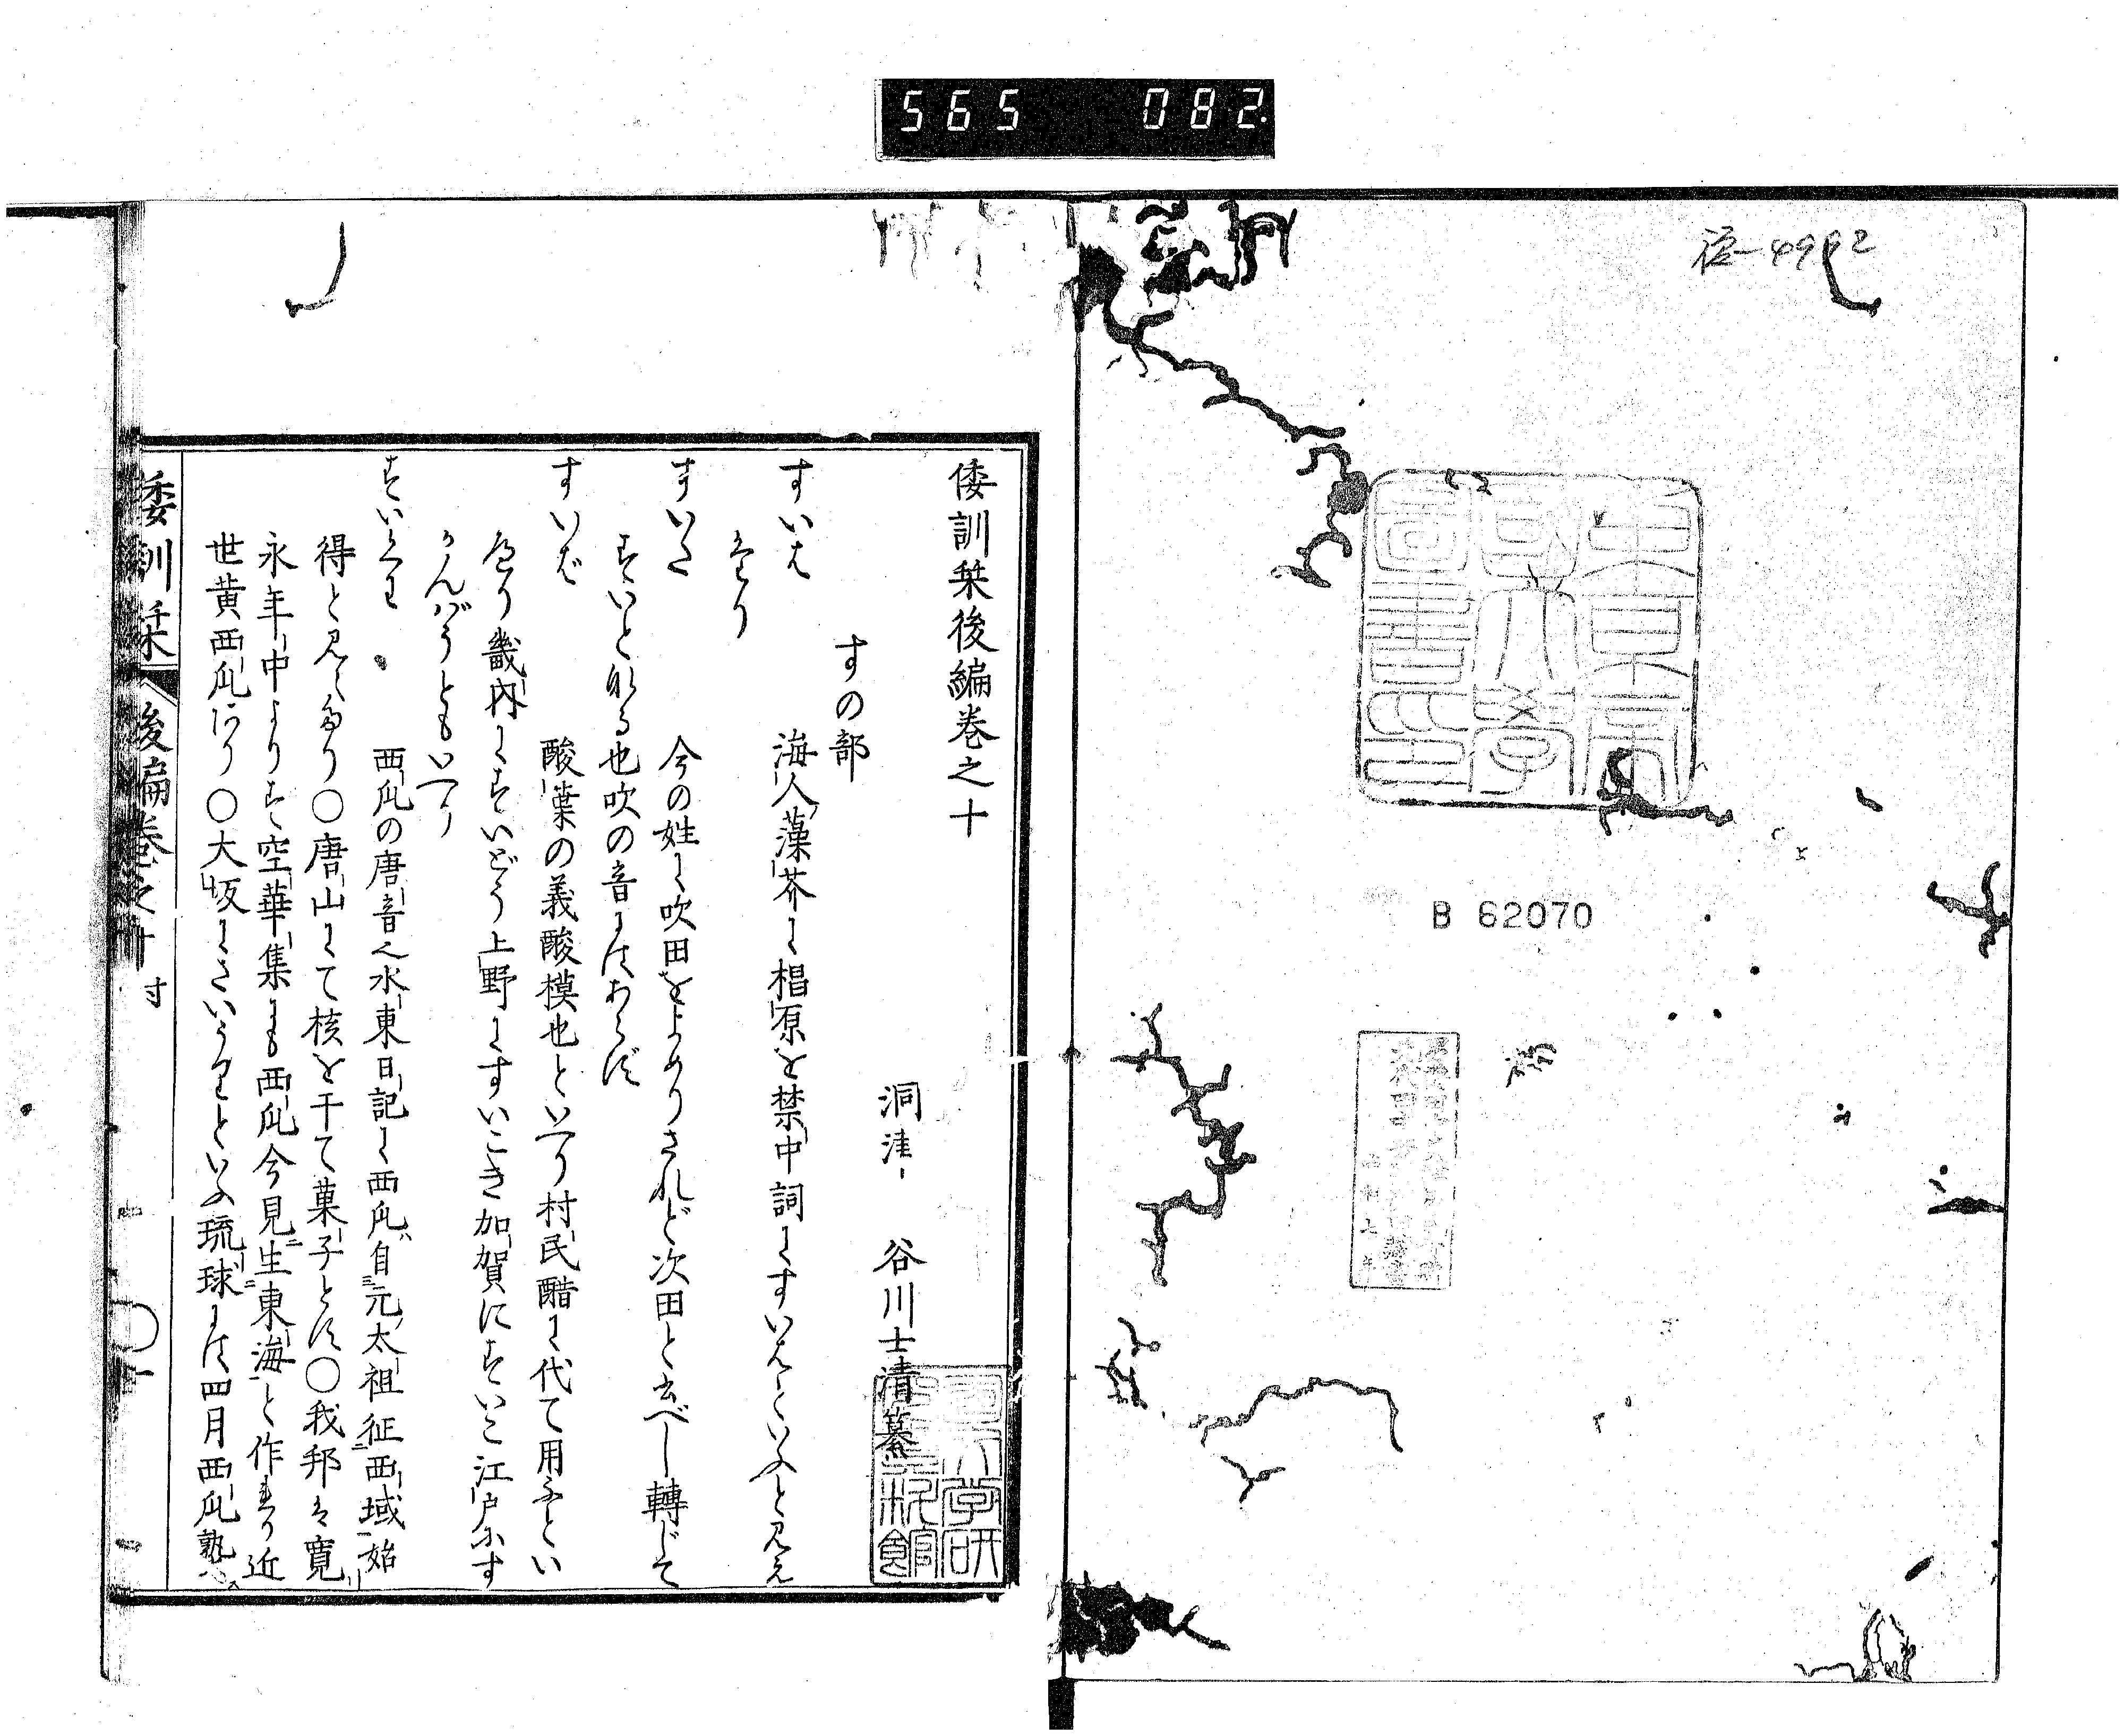 565 082
径-4992
東京帝國大學圖書印
B 62070
倭訓栞後編巻之十
洞津 谷川士清纂
すの部
すいは 海人藻芥に楊原を禁中詞にすいはといふと見え
たり
すいた 今の姓に吹田をよめりされど次田と書べし轉じて
すいとなる也吹の音にはあらず
すいば 酸葉の義酸模也といへり村民醋に代て用ふとい
へり畿内にすいどう上野にすいこき加賀にすいこ江戸にす
かんぼうともいへり
すいくわ 西瓜の唐音也水東日記に西瓜自元太祖征西域始
得と見えたり〇唐山にて核を干て菓子とす〇我邦は寛
永年中よりす空華集にも西瓜今見生東海と作れり近
世黄西瓜あり〇大坂にさいうりといふ琉球には四月西瓜熟
倭訓栞 後編巻之十 す 〇一